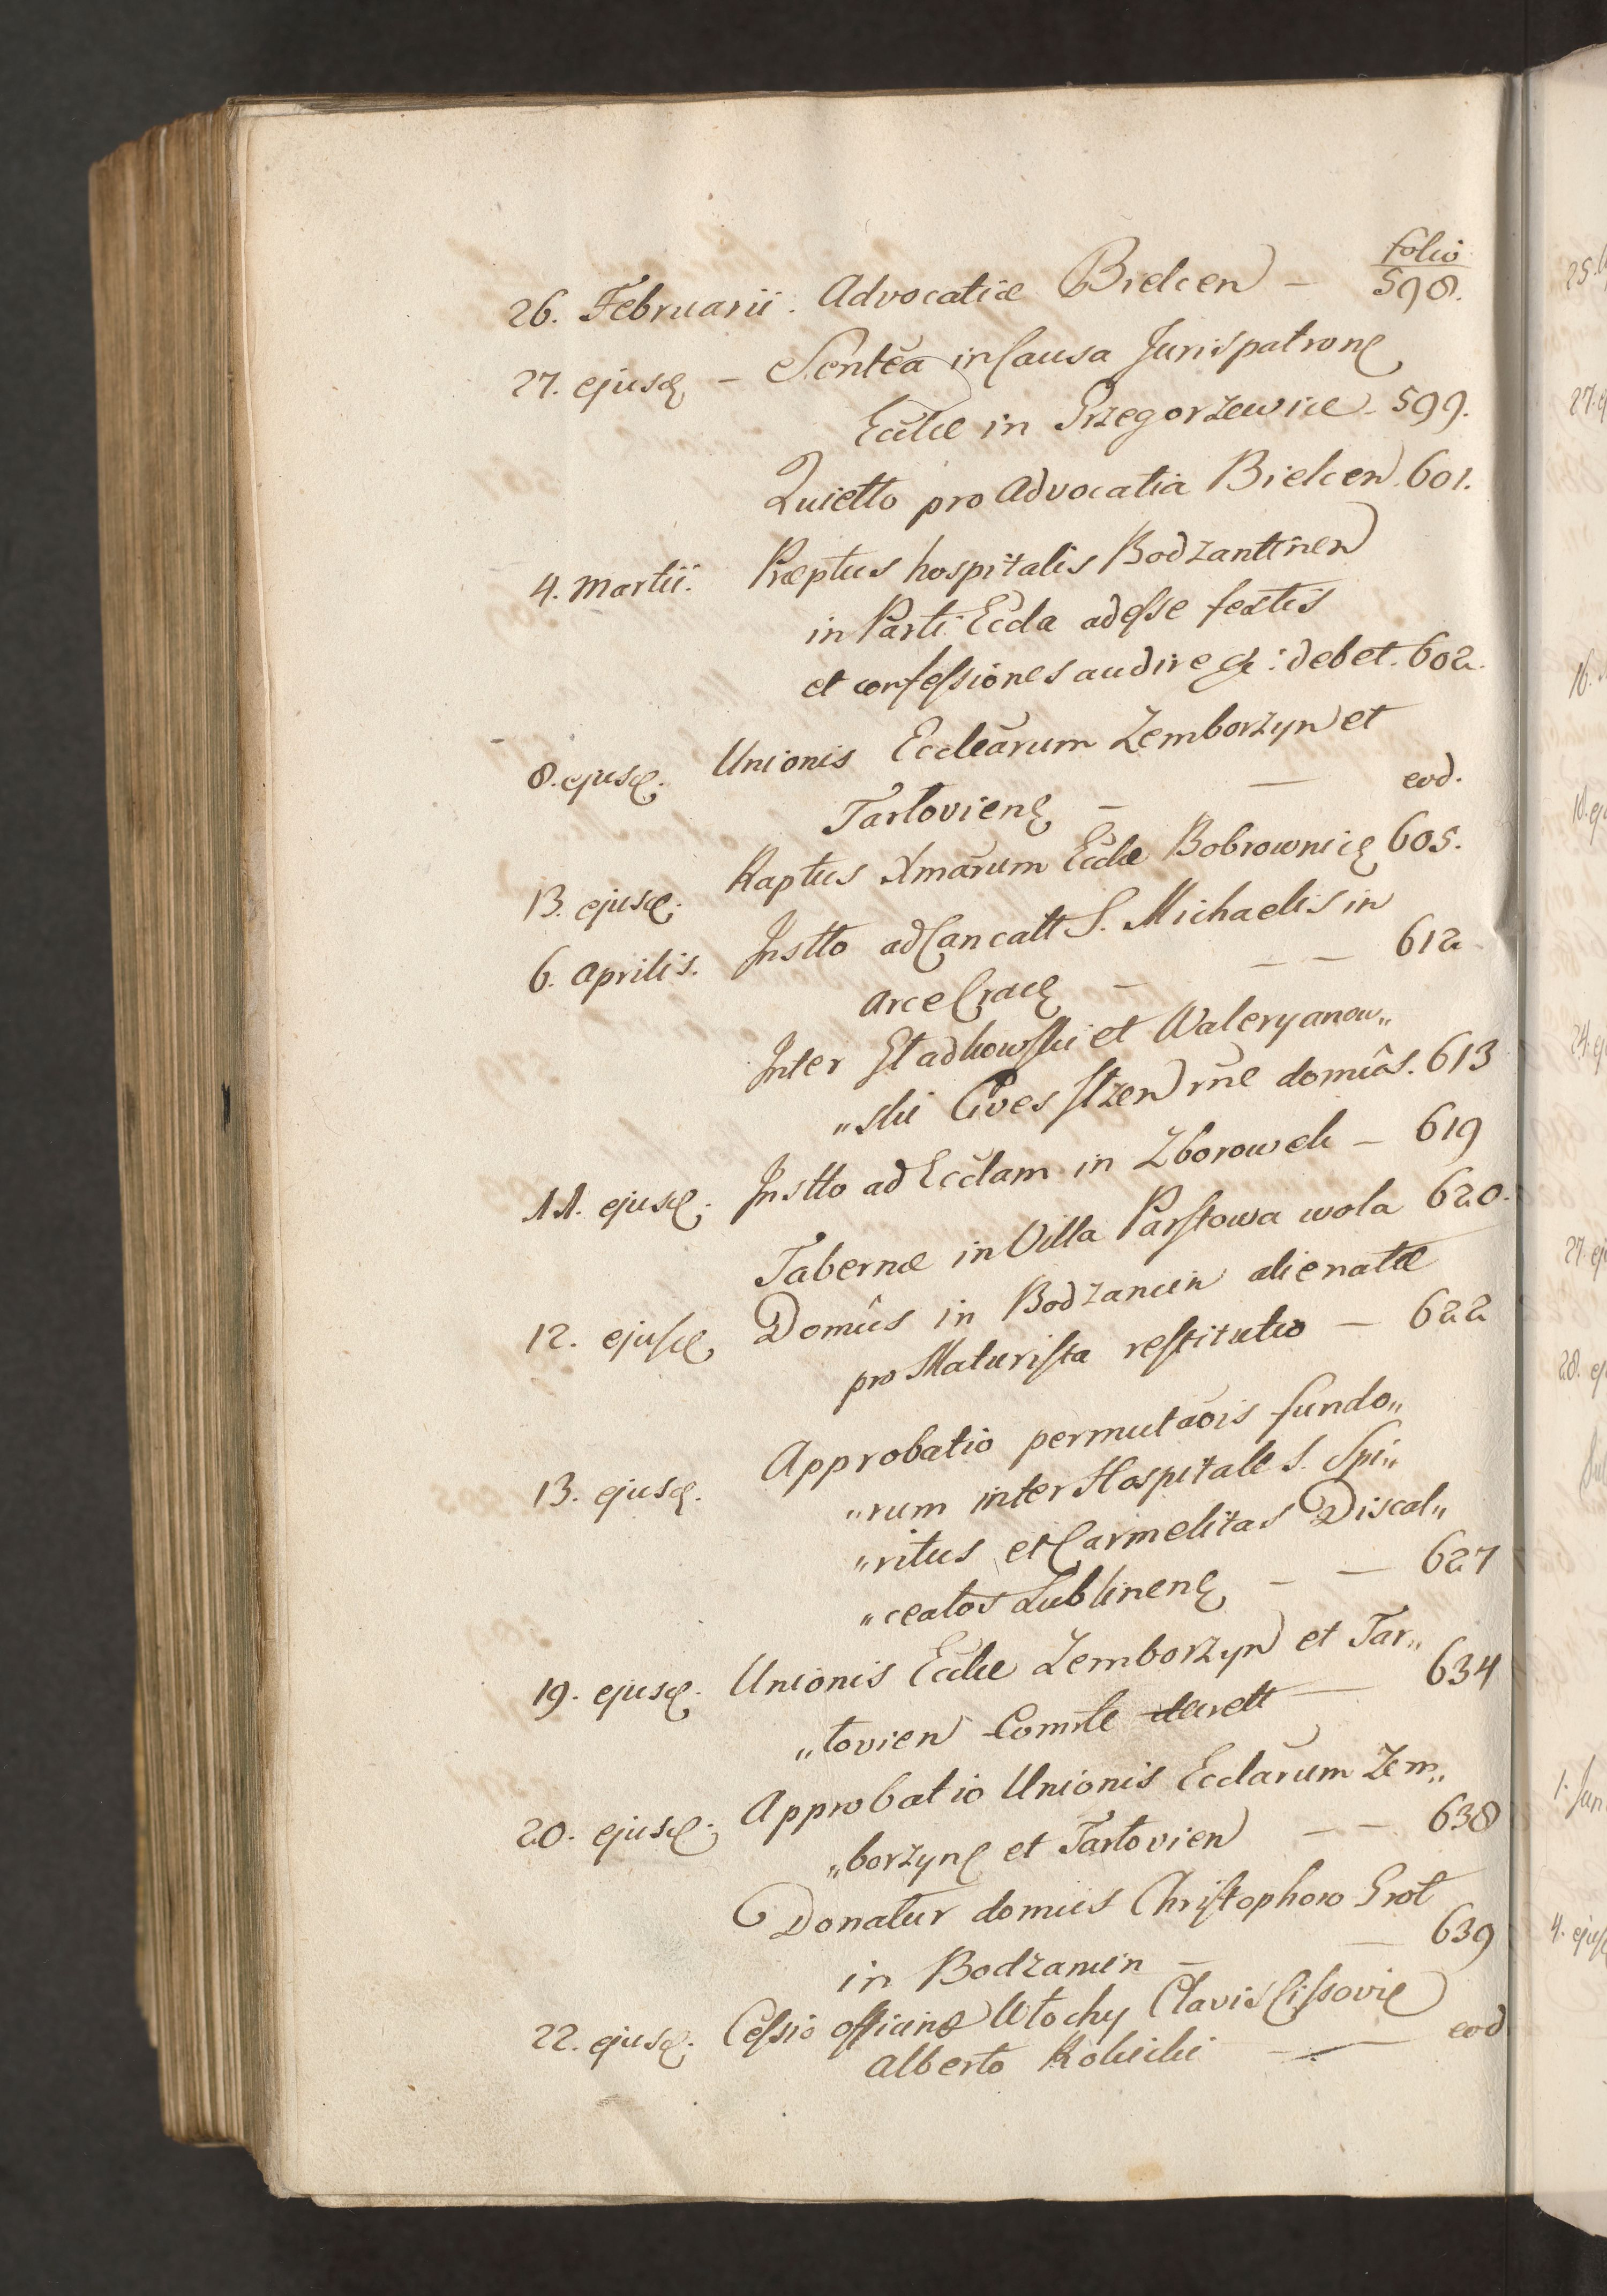 folio
26. Februarii. Advocatiæ Bielcen – 598.
27. ejusd – Sentẽa in Causa Jurispatron
Ecclæ in Przegorzewice – 599.
Quietto pro Advocatia Bielcen. 601.
4. Martii. Præptus hospitalis Bodzantinen
in Parti Eccla adesse festis
et confessiones audire &: debet. 602.
8. ejusd. Unionis Eccleãrum Zemborzyn et
Tarlovien – — eod.
13. ejusd. Raptus Xmãrum Ecclæ Bobrownic 605.
6. Aprilis. Instto ad Cancatt S. Michaelis in
Arce Crac – — — 612.
Inter Stadkowski et Waleryanow„
„ski Cives Ilzen rñe domûs. 613
11. ejusd. Instto ad Ecclam in Zborowek – 619
Tabernæ in Villa Parstowa wola 620.
12. ejusd Domûs in Bodzancin alienatæ
pro Maturista restitutio – 622
13. ejusd. Approbatio permutãois fundo„
„rum inter Hospitale S. Spi„
„ritus et Carmelitas Discal„
„ceatos Lublinen – — 627
19. ejusd. Unionis Ecclæ Zemborzyn et Tar„
„lovien Comrle — 634
20. ejusd. Approbatio Unionis Ecclãrum Zem„
„borzyn et Tarlovien — – 638
Donatur domus Christophoro Grot
in Bodzancin – — 639
22. ejusd. Cessio officinæ Włochy Clavis Cissovie
Alberto – — eod